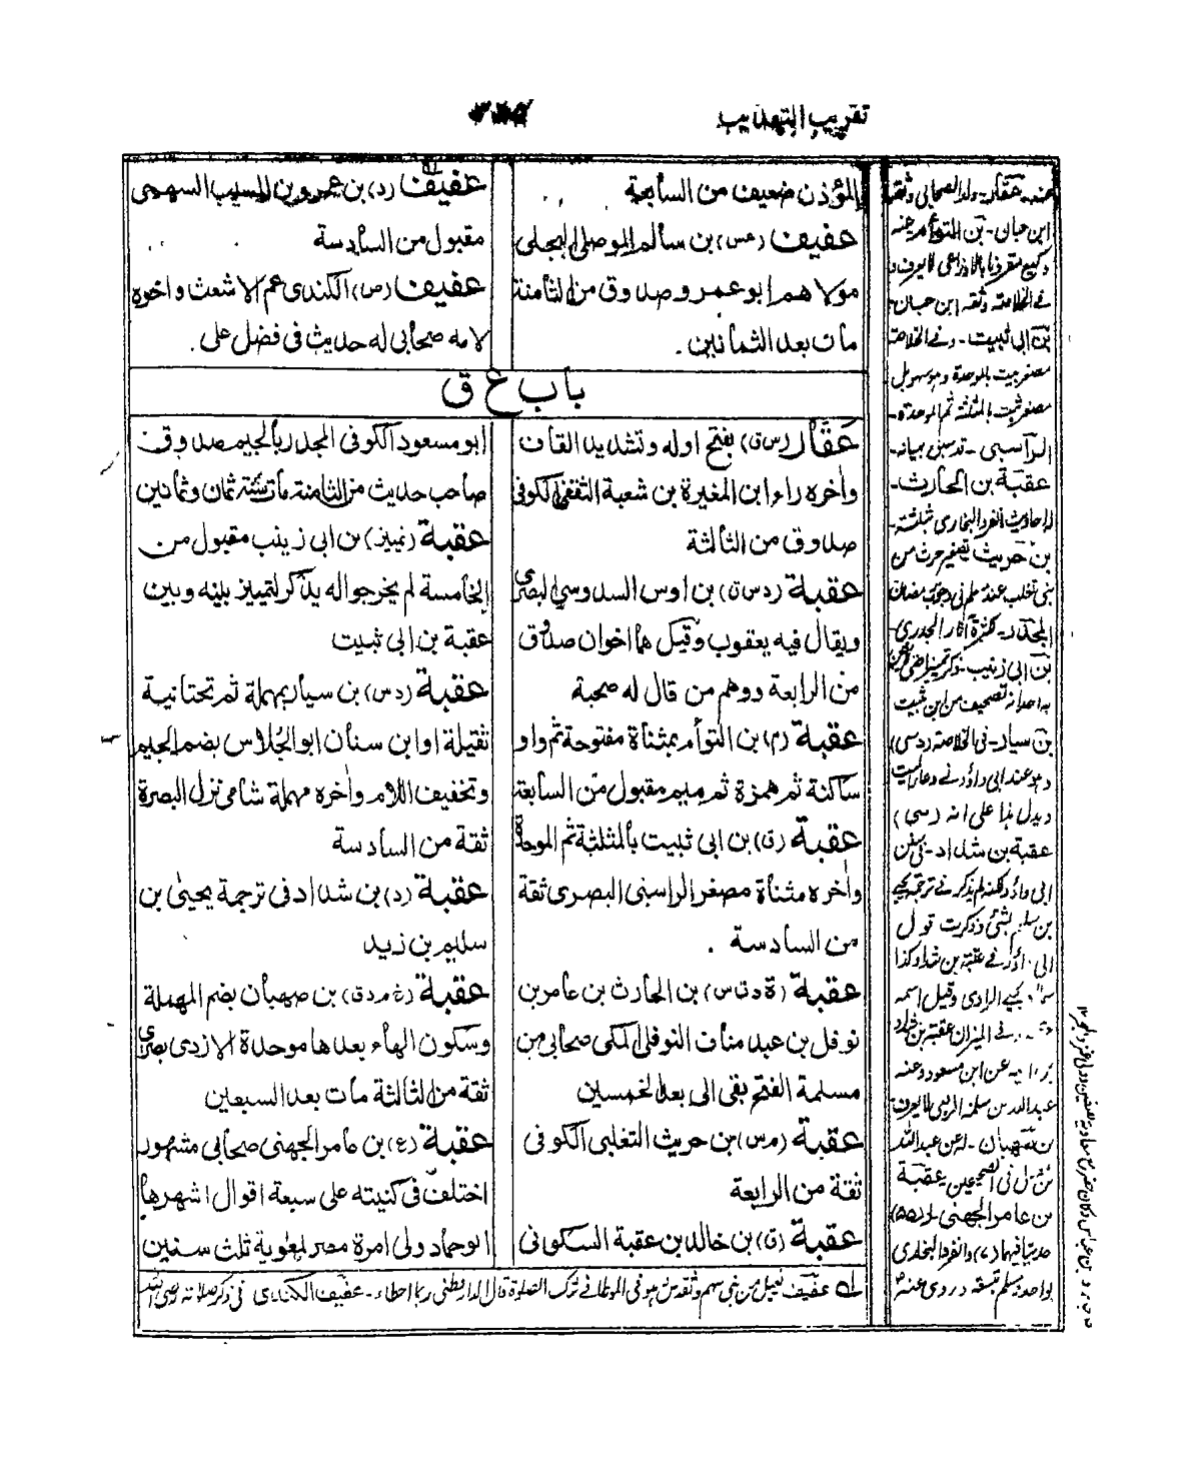 تقريب التهذيب
المؤذن ضعيف من السابعة
عفيف (عس) بن سالم الموصلى البجلى
مولاهم ابو عمرو صدوق من الثامنة
مات بعد الثمانين.
عفيف (د) بن عمرو بن المسيب السهمى
مقبول من السادسة
عفيف (ص) الكندى عم الاشعث واخوه
لامه صحابى له حديث فى فضل على.
باب ع ق
عقار (س ق) بفتح اوله وتشديد القاف
واخره راء ابن المغيرة بن شعبة الثقفى الكوفى
صدوق من الثالثة
عقبة (د س ق) بن اوس السدوسى البصرى
ويقال فيه يعقوب وقيل هما اخوان صدوق
من الرابعة ووهم من قال له صحبة
عقبة (م) بن التوأم بمثناة مفتوحة ثم واو
ساكنة ثم همزة ثم ميم مقبول من السابعة
عقبة (ق) بن ابى ثبيت بالمثلثة ثم الموحدة
واخره مثناة مصغر الراسبى البصرى ثقة
من السادسة.
عقبة (خ د ت س) بن الحارث بن عامر بن
نوفل بن عبد مناف النوفلى المكى صحابى من
مسلمة الفتح بقى الى بعد الخمسين
عقبة (م س) بن حريث التغلبى الكوفى
ثقة من الرابعة
عقبة (ق) بن خالد بن عقبة السكونى
ابو مسعود الكوفى المجدر بالجيم صدوق
صاحب حديث من الثامنة مات سنة ثمان وثمانين
عقبة (تمييز) بن ابى زينب مقبول من
الخامسة لم يخرجوا له يذكر لتمييز بينه وبين
عقبة بن ابى ثبيت
عقبة (د س) بن سيار بمهملة ثم تحتانية
ثقيلة او ابن سنان ابو الجُلاس بضم الجيم
وتخفيف اللام واخره مهملة شامى نزل البصرة
ثقة من السادسة
عقبة (د) بن شداد فى ترجمة يحيى بن
سليم بن زيد
عقبة (غ م د ق) بن صهبان بضم المهملة
وسكون الهاء بعدها موحدة الازدى بصرى
ثقة من الثالثة مات بعد السبعين
عقبة (ع) بن عامر الجهنى صحابى مشهور
اختلف فى كنيته على سبعة اقوال اشهرها
ابو حماد ولى امرة مصر لمعوية ثلث سنين
عقار - ولد الصحابى وثقه
ابن حبان - بن التوأم عنه
وكيع مقرونا بالاوزاعى لا يعرف و
فے الخلاصة وثقه ابن حبان -
بن ابى ثبيت - وفے الخلاصة
مصغر بيت بالموحدة وهو سهو بل
مصغر ثبت بالمثلثة ثم الموحدة -
الراسبى - قد سبق بيانه -
عقبة بن الحارث -
له احاديث انفرد البخارى بثلثة -
بن حريث تصغير حرث من
المجدر - كثرة آثار الجدرى -
به احد انه تصحيف من ابن ثبيت
بن سيار - فى الخلاصة (د سى)
ويدل هذا على انه (سى)
عقبة بن شداد - فى سنن
ابى داؤد ولكنه لم يذكر فے ترجمة يحيى
بن سليم بشئ وذكرت قول
ابى داؤد فے عقبة بن شداد كذا
يحيى الراوى وقيل اسمه
فے الميزان عقبة بن شداد
عن ابن مسعود وعنه
عبد الله بن سلمة الربعى لا يعرف
بن صهبان - له عن عبد الله
بن عامر الجهنى - له (٥٥)
حديثا فيهما (٧) وانفرد البخارى
بواحد ومسلم بتسعة وروى عنه
عفيف قيل من بنى سهم وثقه س هو فى الموطا فے ترك الصلوة قال الدارقطنى ربما اخطاء - عفيف الكندى